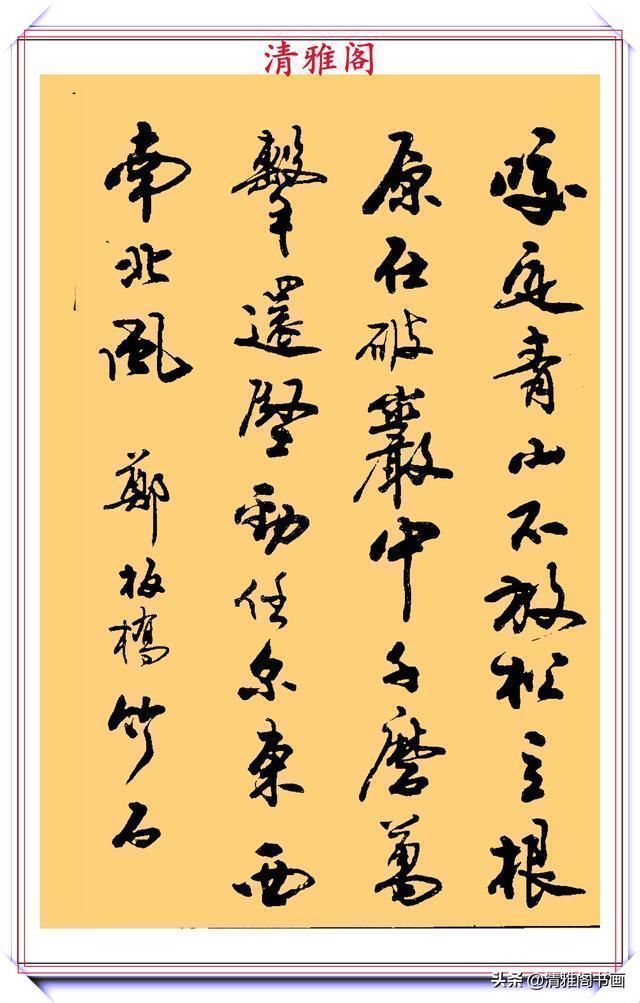 清雅阁
咬定青山不放松立根
原在破巖中千磨萬
擊還堅勁任尔東西
南北風 鄭板橋竹石
头条 @清雅阁书画